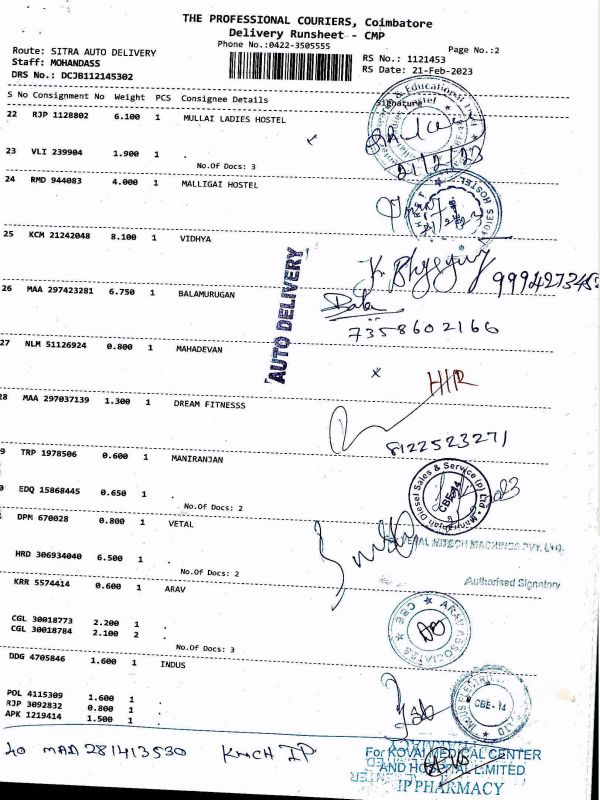 THE PROFESSIONAL COURIERS, Coimbatore
Delivery Runsheet - CMP
Phone No.:0422-3505555
Page No.:2
Route: SITRA AUTO DELIVERY
Staff: MOHANDASS
DRS No.: DCJB112145302
RS No.: 1121453
RS Date: 21-Feb-2023
S No Consignment No Weight PCS Consignee Details Signature
22 RJP 1128802 6.100 1 MULLAI LADIES HOSTEL
& Educational
21/2/23
23 VLI 239904 1.900 1 .
No.Of Docs: 3
24 RMD 944083 4.000 1 MALLIGAI HOSTEL
25 KCM 21242048 8.100 1 VIDHYA
26 MAA 297423281 6.750 1 BALAMURUGAN
Bala
7358602166
AUTO DELIVERY
27 NLM 51126924 0.800 1 MAHADEVAN
x
28 MAA 297037139 1.300 1 DREAM FITNESSS
8122523271
9 TRP 1978506 0.600 1 MANIRANJAN
Maniranjan Diesel Sales & Service (p) Ltd
CBE-14
0 EDQ 15868445 0.650 1 .
No.Of Docs: 2
DPM 670028 0.800 1 VETAL
VETAL HITECH MACHINES PVT. LTD.
HRD 306934040 6.500 1 .
No.Of Docs: 2
Authorised Signatory
KRR 5574414 0.600 1 ARAV
ARAV ASSOCIATES ★ CBE ★
CGL 30018773 2.200 1 .
CGL 30018784 2.100 2 .
No.Of Docs: 3
DDG 4705846 1.600 1 INDUS
CBE-14
POL 4115309 1.600 1 .
RJP 3092832 0.800 1 .
APK 1219414 1.500 1 .
40 MAA 281413530 KMCH IP
For KOVAI MEDICAL CENTER
AND HOSPITAL LIMITED
IP PHARMACY